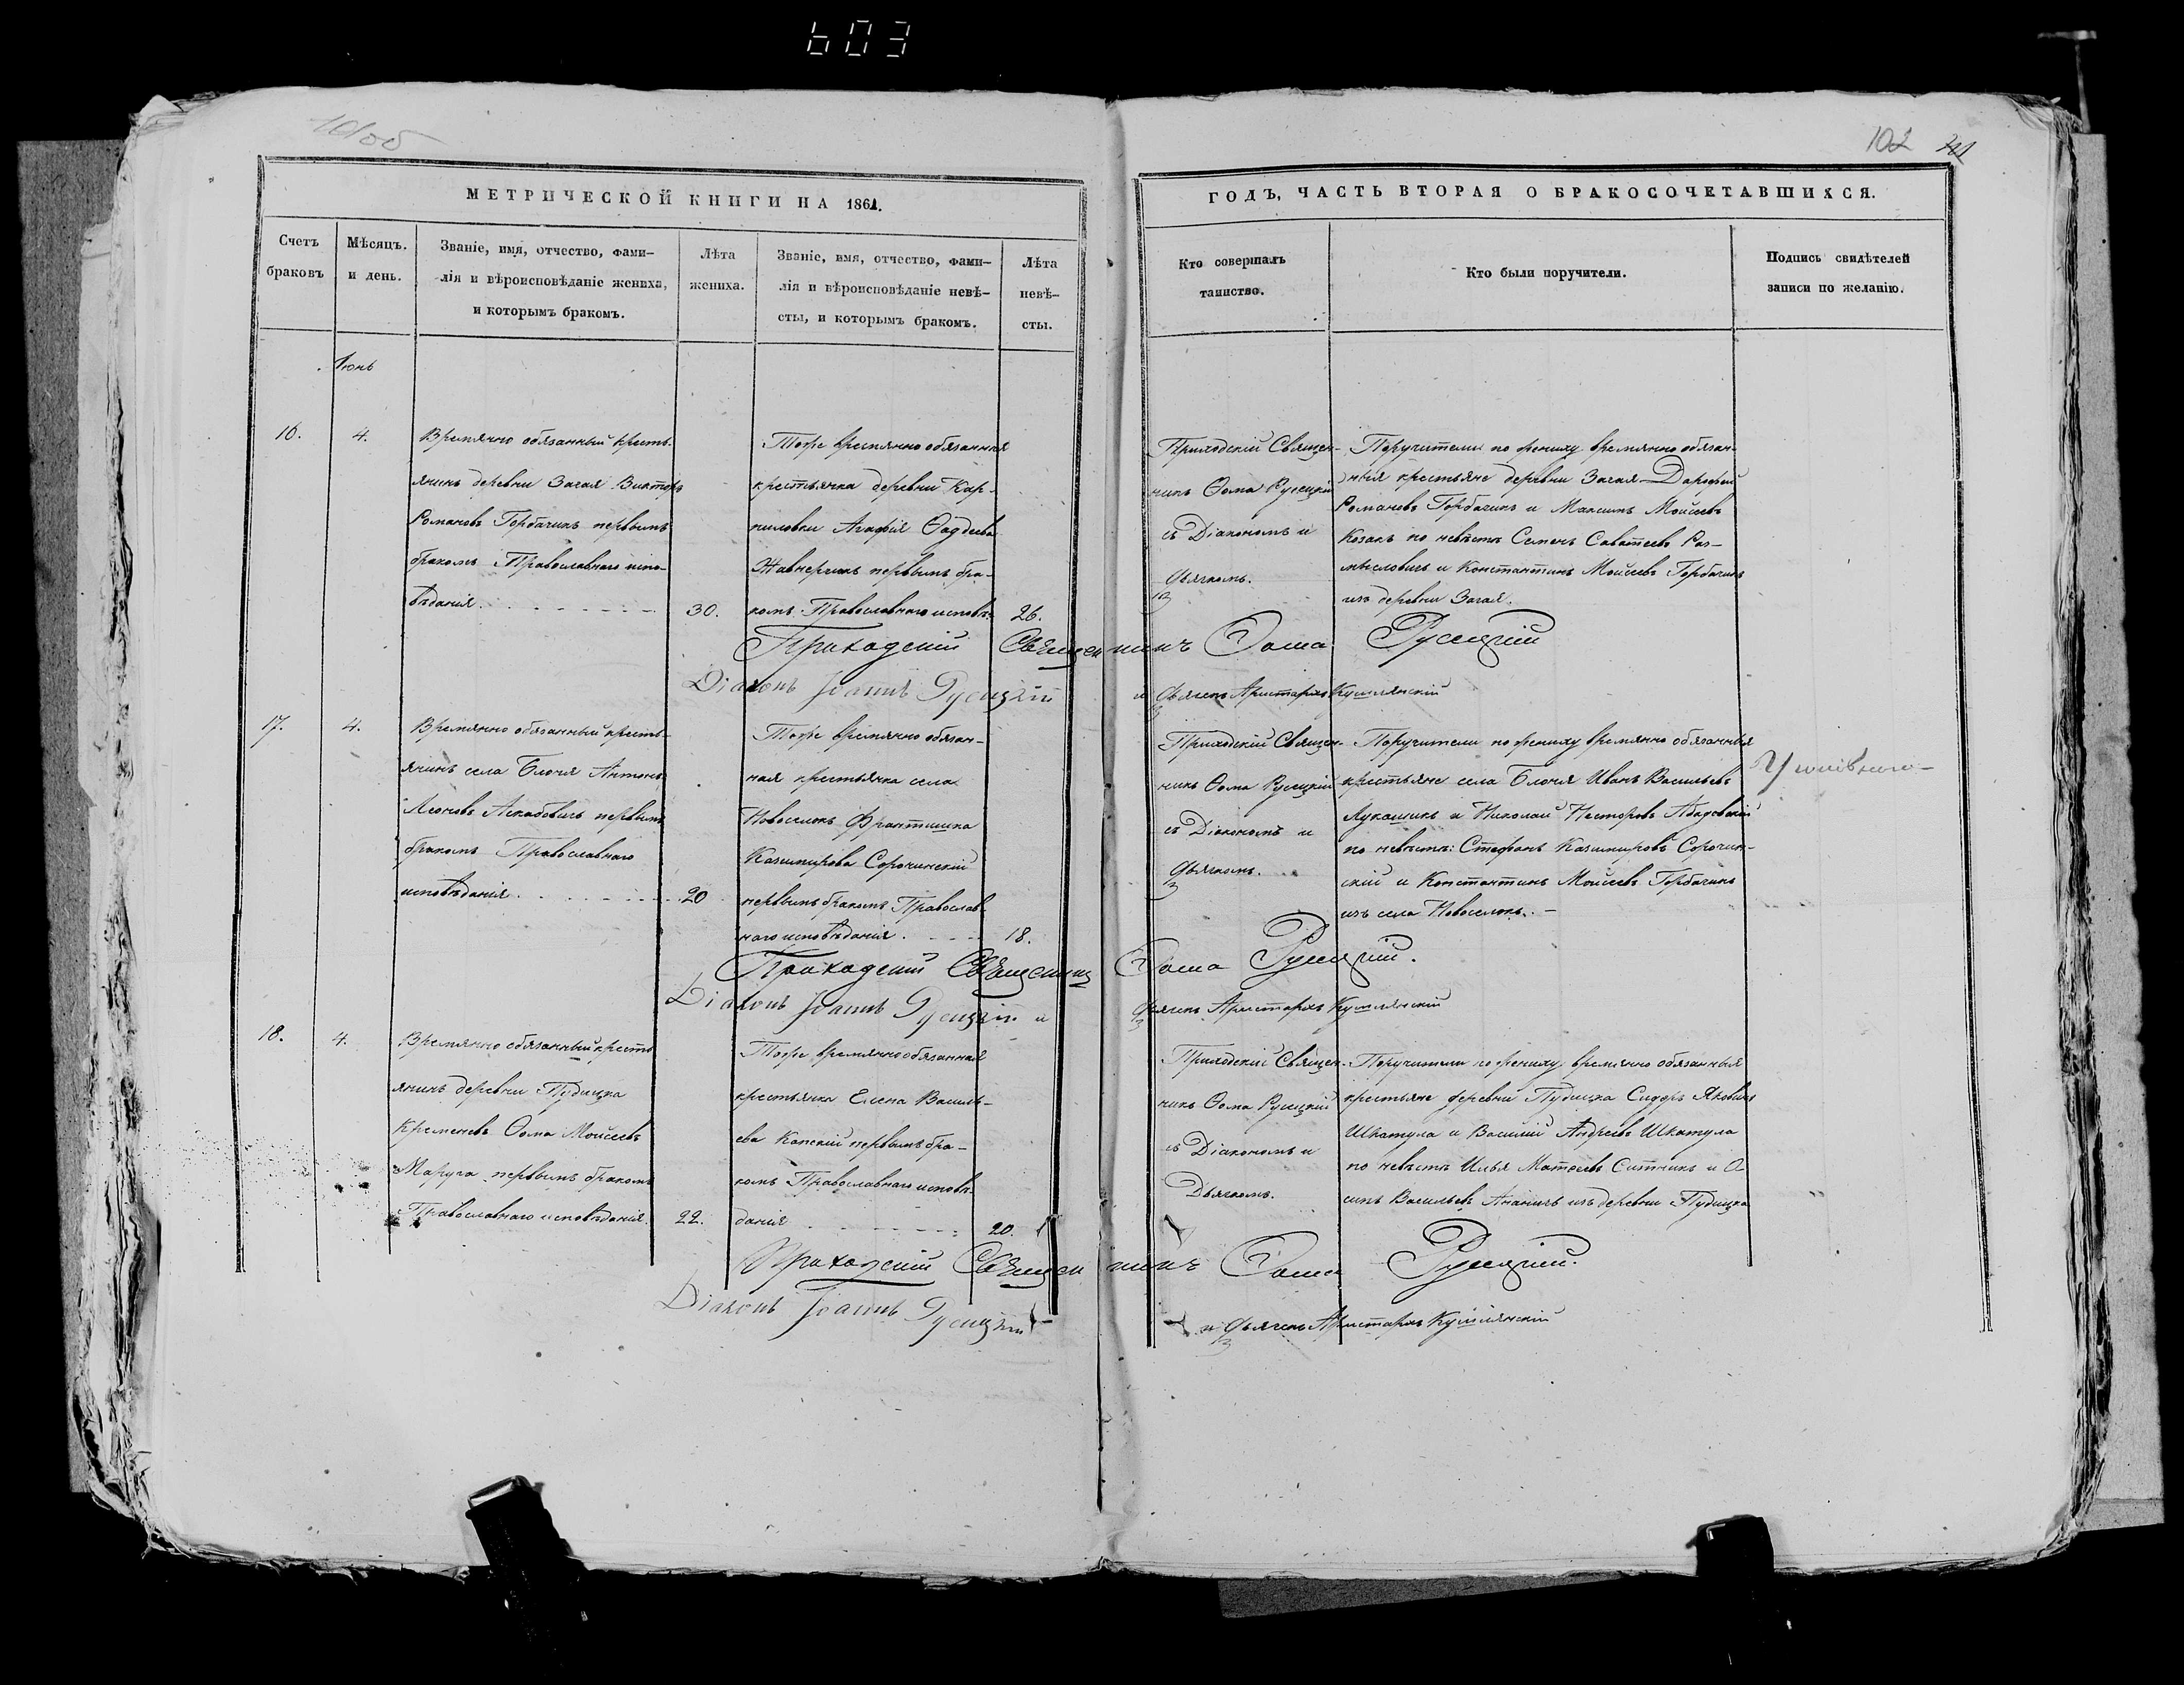 603
101об
102
МЕТРИЧЕСКОЙ КНИГИ НА 1861.
ГОДЪ, ЧАСТЬ ВТОРАЯ О БРАКОСОЧЕТАВШИХСЯ.
Счетъ
браковъ
Мѣсяцъ.
и день.
Званіе, имя, отчество, фами-
лія и вѣроисповѣданіе жениха,
и которымъ бракомъ.
Лѣта
жениха.
Званіе, имя, отчество, фами-
лія и вѣроисповѣданіе невѣ-
сты, и которымъ бракомъ.
Лѣта
невѣ-
сты.
Кто совершалъ
таинство.
Кто были поручители.
Подпись свидѣтелей
записи по желанію.
Іюнь
16.
4.
Времянно обязанный кресть-
янинъ деревни Загая Викторъ
Романовъ Горбачикъ первымъ
бракомъ Православнаго испо-
вѣданія.
30.
Тоже времянно обязанная
крестьянка деревни Кар-
пиловки Агафія Ѳадѣева
первымъ бра-
комъ Православнаго исповѣ-
26.
Приходскій Священ-
никъ Ѳома Русецкій
съ Діакономъ и
дьячкомъ.
Поручители по жениху времянно обязан-
ныя крестьяне деревни Загая
Романовъ Горбачикъ и Максимъ Моисеевъ
Козакъ по невѣстѣ Семенъ Саватеевъ Раз-
мысловичъ и Константинъ Моисеевъ Горбачикъ
изъ деревни Загая.
Приходскій Священникъ Ѳома Русецкій
Діаконъ Іоаннъ Русецкій
и Дьячекъ Аристархъ
17.
4.
Времянно обязанный кресть-
янинъ села Блочя Антонъ
Леоновъ первымъ
бракомъ Православнаго
исповѣданія.
20
Тоже времянно обязан-
ная крестьянка села
Новоселокъ Франтишка
Казимирова Сорочинскій
первымъ бракомъ Православ-
наго исповѣданія.
18.
Приходскій Священ-
никъ Ѳома Русецкій
съ Діакономъ и
дьячкомъ.
Поручители по жениху времянно обязанныя
крестьяне села Блочя Иванъ Васильевъ
Лукашикъ и Николай Несторовъ
по невѣстѣ: Стефанъ Казимировъ Сорочин-
скій и Константинъ Моисеевъ Горбачикъ
изъ села Новоселокъ. –
Приходскій Священникъ Ѳома Русецкій.
Діаконъ Іоаннъ Русецкій и
Дьячекъ Аристархъ
18.
4.
Времянно обязанный кресть
янинъ деревни Пудицка
Ѳома Моисеевъ
Маруга первымъ бракомъ
Православнаго исповѣданія.
22.
Тоже времянно обязанная
крестьянка Елена Василь-
ева Капскій первымъ бра-
комъ Православнаго исповѣ-
данія
20.
Приходскій Священ-
никъ Ѳома Русецкій
съ Діакономъ и
Дьячкомъ.
Поручители по жениху времянно обязанныя
крестьяне деревни Пудицка Сидоръ
Шкатула и Василій Андреевъ Шкатула
по невѣстѣ Илья Матѳеевъ Ситникъ и О
сипъ Васильевъ Ананичъ изъ деревни Пудицка
Приходскій Священникъ Ѳома Русецкій.
Діаконъ Іоаннъ Русецкій
и Дьячекъ Аристархъ